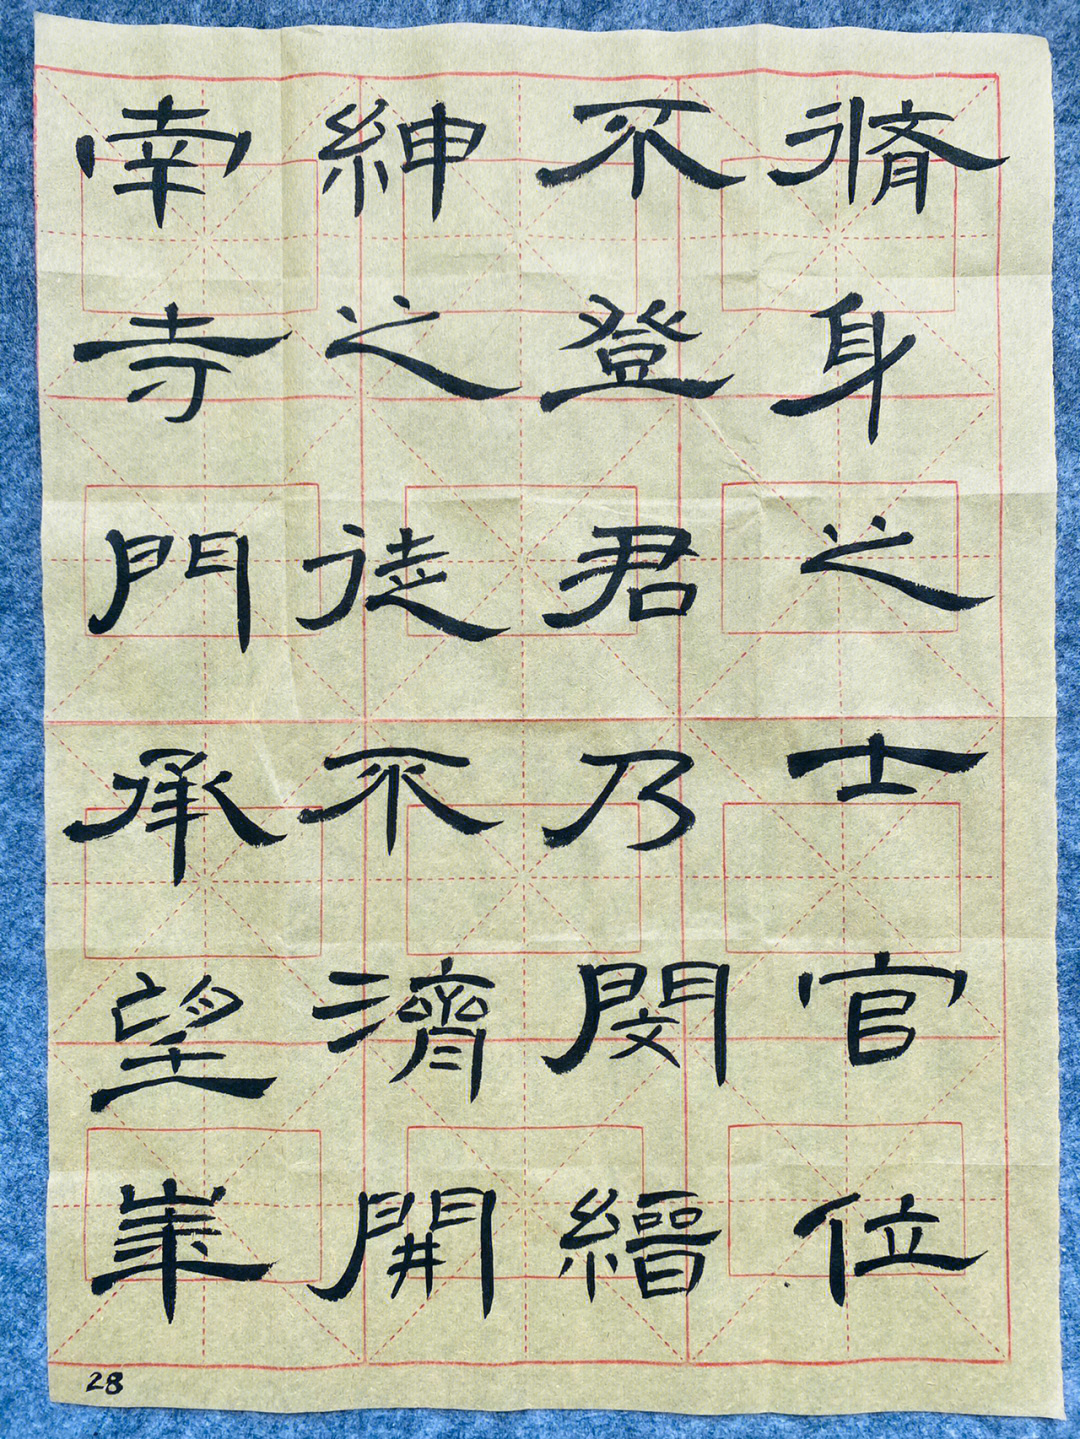 脩身之士官位
不登君乃閔縉
紳之徒不濟開
南寺門承望華
28